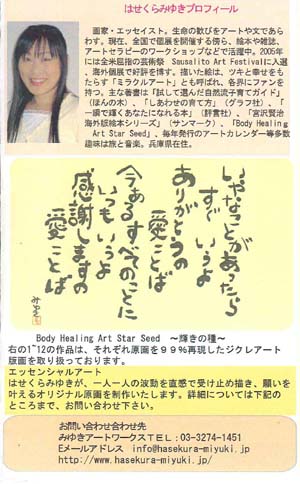 はせくらみゆきプロフィール
画家・エッセイスト。生命の歓びをアートや文であら
わす。現在、全国で個展を開催する傍ら、絵本や雑誌、
アートセラピーのワークショップなどで活躍中。2005年
には全米屈指の芸術祭 Sausalito Art Festivalに入選
、海外個展で好評を博す。描いた絵は、ツキと幸せをも
たらす「ミラクルアート」とも呼ばれ、各界にファンを
持つ。主な著書は「試して選んだ自然流子育てガイド」
(ほんの木)、「しあわせの育て方」(グラフ社)、「
一瞬で輝くあなたになれる本」(評言社)、「宮沢賢治
海外版絵本シリーズ」(サンマーク)、「Body Healing
Art Star Seed」、毎年発行のアートカレンダー等多数
趣味は旅と音楽。兵庫県在住。
いやなことがあったら
すぐいうよ
ありがとうの
愛ことば
今あるすべてのことに
いつもいうよ
感謝しますの
愛ことば
みゆき
Body Healing Art Star Seed ～輝きの種～
右の1~12の作品は、それぞれ原画を99%再現したジクレアート
版画を取り扱っております。
エッセンシャルアート
はせくらみゆきが、一人一人の波動を直感で受け止め描き、願いを
叶えるオリジナル原画を制作いたします。詳細については下記の
ところまで、お問い合わせ下さい。
お問い合わせ合わせ先
みゆきアートワークスTEL:03-3274-1451
Eメールアドレス info@hasekura-miyuki.jp/
http://www.hasekura-miyuki.jp/